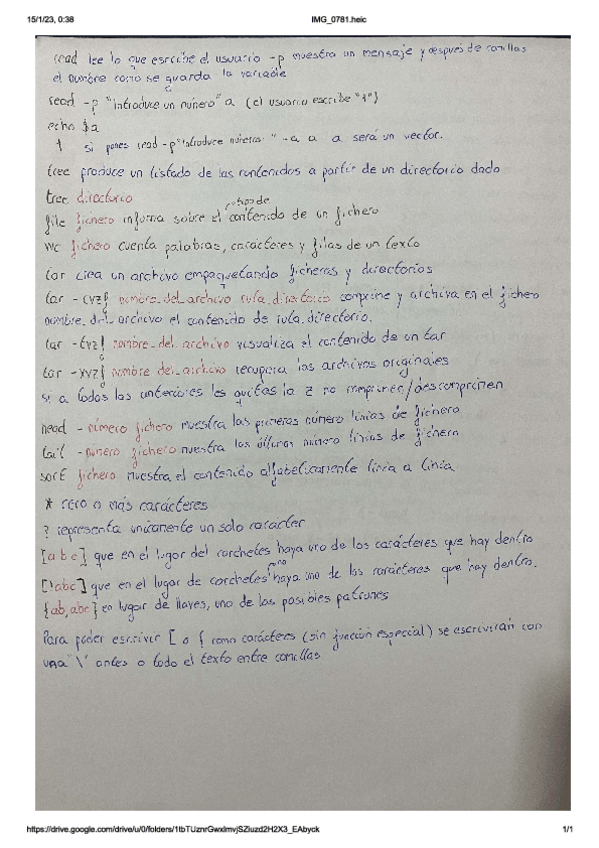 15/1/23, 0:38
IMG_0781.heic
read lee lo que escribe el usuario -p muestra un mensaje y después de comillas
el nombre como se guarda la variable
read -p "introduce un número" a (el usuario escribe "1")
echo $a
1 si pones read -p "introduce números:" -a a a será un vector.
tree produce un listado de los contenidos a partir de un directorio dado
tree directorio
file fichero informa sobre el tipo de contenido de un fichero
wc fichero cuenta palabras, carácteres y filas de un texto
tar crea un archivo empaquetando ficheros y directorios
tar -cvzf nombre_del_archivo ruta_directorio comprime y archiva en el fichero
nombre_del_archivo el contenido de ruta_directorio.
tar -tvzf nombre_del_archivo visualiza el contenido de un tar
tar -xvzf nombre_del_archivo recupera los archivos originales
si a todos los anteriores les quitas la z no comprimen/descomprimen
head -número fichero muestra las primeras número linias de fichero
tail -número fichero muestra las últimas número linias de fichero
sort fichero muestra el contenido alfabéticamente linia a linia
* cero o más carácteres
? representa únicamente un solo carácter
[abc] que en el lugar del corchetes haya uno de los carácteres que hay dentro
[!abc] que en el lugar de corchetes no haya uno de los carácteres que hay dentro.
{ab,abc} en lugar de llaves, uno de los posibles patrones
Para poder escrivir [ o { como carácteres (sin función especial) se escrivirán con
una "\" antes o todo el texto entre comillas
https://drive.google.com/drive/u/0/folders/1tbTUznrGwxlmvjSZiuzd2H2X3_EAbyck
1/1